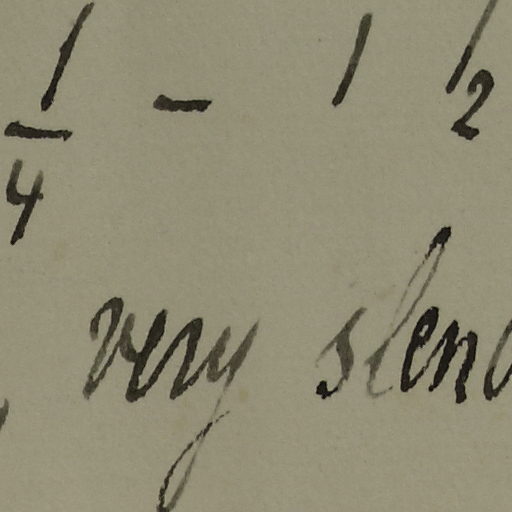 1/4 - 1 1/2
, very slend